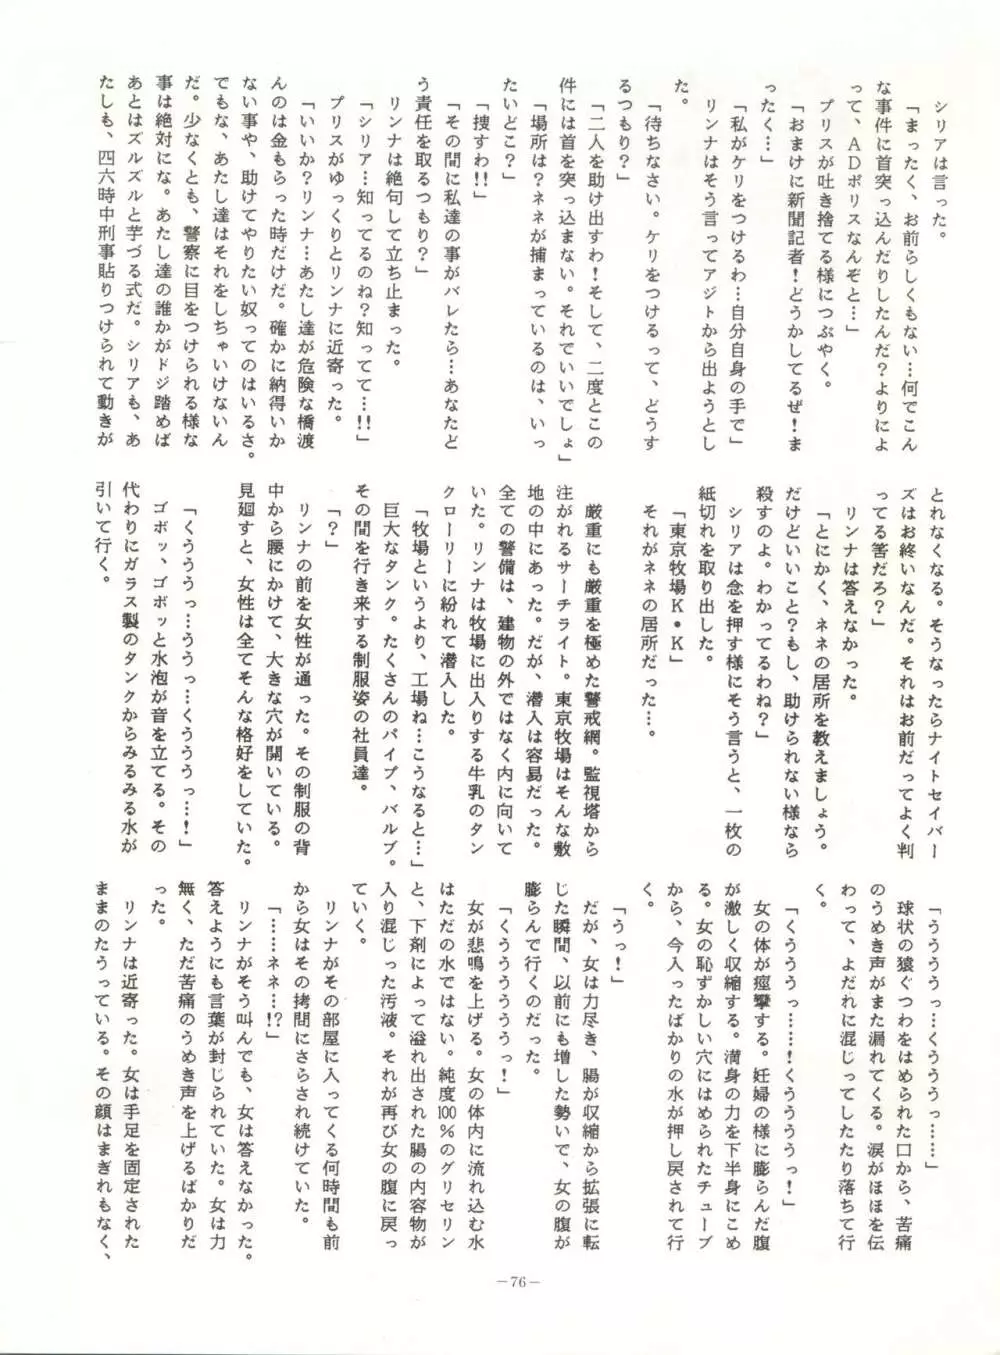 シリアは言った。
「まったく、お前らしくもない…何でこん
な事件に首突っ込んだりしたんだ？よりによ
って、ADポリスなんぞと…」
プリスが吐き捨てる様につぶやく。
「おまけに新聞記者！どうかしてるぜ！ま
ったく…」
「私がケリをつけるわ…自分自身の手で」
リンナはそう言ってアジトから出ようとし
た。
「待ちなさい。ケリをつけるって、どうす
るつもり？」
「二人を助け出すわ！そして、二度とこの
件には首を突っ込まない。それでいいでしょ」
「場所は？ネネが捕まっているのは、いっ
たいどこ？」
「捜すわ!!」
「その間に私達の事がバレたら…あなたど
う責任を取るつもり？」
リンナは絶句して立ち止まった。
「シリア…知ってるのね？知ってて…!!」
プリスがゆっくりとリンナに近寄った。
「いいか？リンナ…あたし達が危険な橋渡
んのは金もらった時だけだ。確かに納得いか
ない事や、助けてやりたい奴ってのはいるさ。
でもな、あたし達はそれをしちゃいけないん
だ。少なくとも、警察に目をつけられる様な
事は絶対にな。あたし達の誰かがドジ踏めば
あとはズルズルと芋づる式だ。シリアも、あ
たしも、四六時中刑事貼りつけられて動きが
とれなくなる。そうなったらナイトセイバー
ズはお終いなんだ。それはお前だってよく判
ってる筈だろ？」
リンナは答えなかった。
「とにかく、ネネの居所を教えましょう。
だけどいいこと？もし、助けられない様なら
殺すのよ。わかってるわね？」
シリアは念を押す様にそう言うと、一枚の
紙切れを取り出した。
「東京牧場K・K」
それがネネの居所だった…。
厳重にも厳重を極めた警戒網。監視塔から
注がれるサーチライト。東京牧場はそんな敷
地の中にあった。だが、潜入は容易だった。
全ての警備は、建物の外ではなく内に向いて
いた。リンナは牧場に出入りする牛乳のタン
クローリーに紛れて潜入した。
「牧場というより、工場ね…こうなると…」
巨大なタンク。たくさんのパイプ、バルブ。
その間を行き来する制服姿の社員達。
「？」
リンナの前を女性が通った。その制服の背
中から腰にかけて、大きな穴が開いている。
見廻すと、女性は全てそんな格好をしていた。
「くうううっ…ううっ…くううっ…！」
ゴボッ、ゴボッと水泡が音を立てる。その
代わりにガラス製のタンクからみるみる水が
引いて行く。
「うううっ…くううっ……」
球状の猿ぐつわをはめられた口から、苦痛
のうめき声がまた漏れてくる。涙がほほを伝
わって、よだれに混じってしたたり落ちて行
く。
「くうううっ……！くうううっ！」
女の体が痙攣する。妊婦の様に膨らんだ腹
が激しく収縮する。満身の力を下半身にこめ
る。女の恥ずかしい穴にはめられたチューブ
から、今入ったばかりの水が押し戻されて行
く。
「うっ！」
だが、女は力尽き、腸が収縮から拡張に転
じた瞬間、以前にも増した勢いで、女の腹が
膨らんで行くのだった。
「くううううっ！」
女が悲鳴を上げる。女の体内に流れ込む水
はただの水ではない。純度100％のグリセリン
と、下剤によって溢れ出された腸の内容物が
入り混じった汚液。それが再び女の腹に戻っ
ていく。
リンナがその部屋に入ってくる何時間も前
から女はその拷問にさらされ続けていた。
「……ネネ…!?」
リンナがそう叫んでも、女は答えなかった。
答えようにも言葉が封じられていた。女は力
無く、ただ苦痛のうめき声を上げるばかりだ
った。
リンナは近寄った。女は手足を固定された
ままのたうっている。その顔はまぎれもなく、
－76－